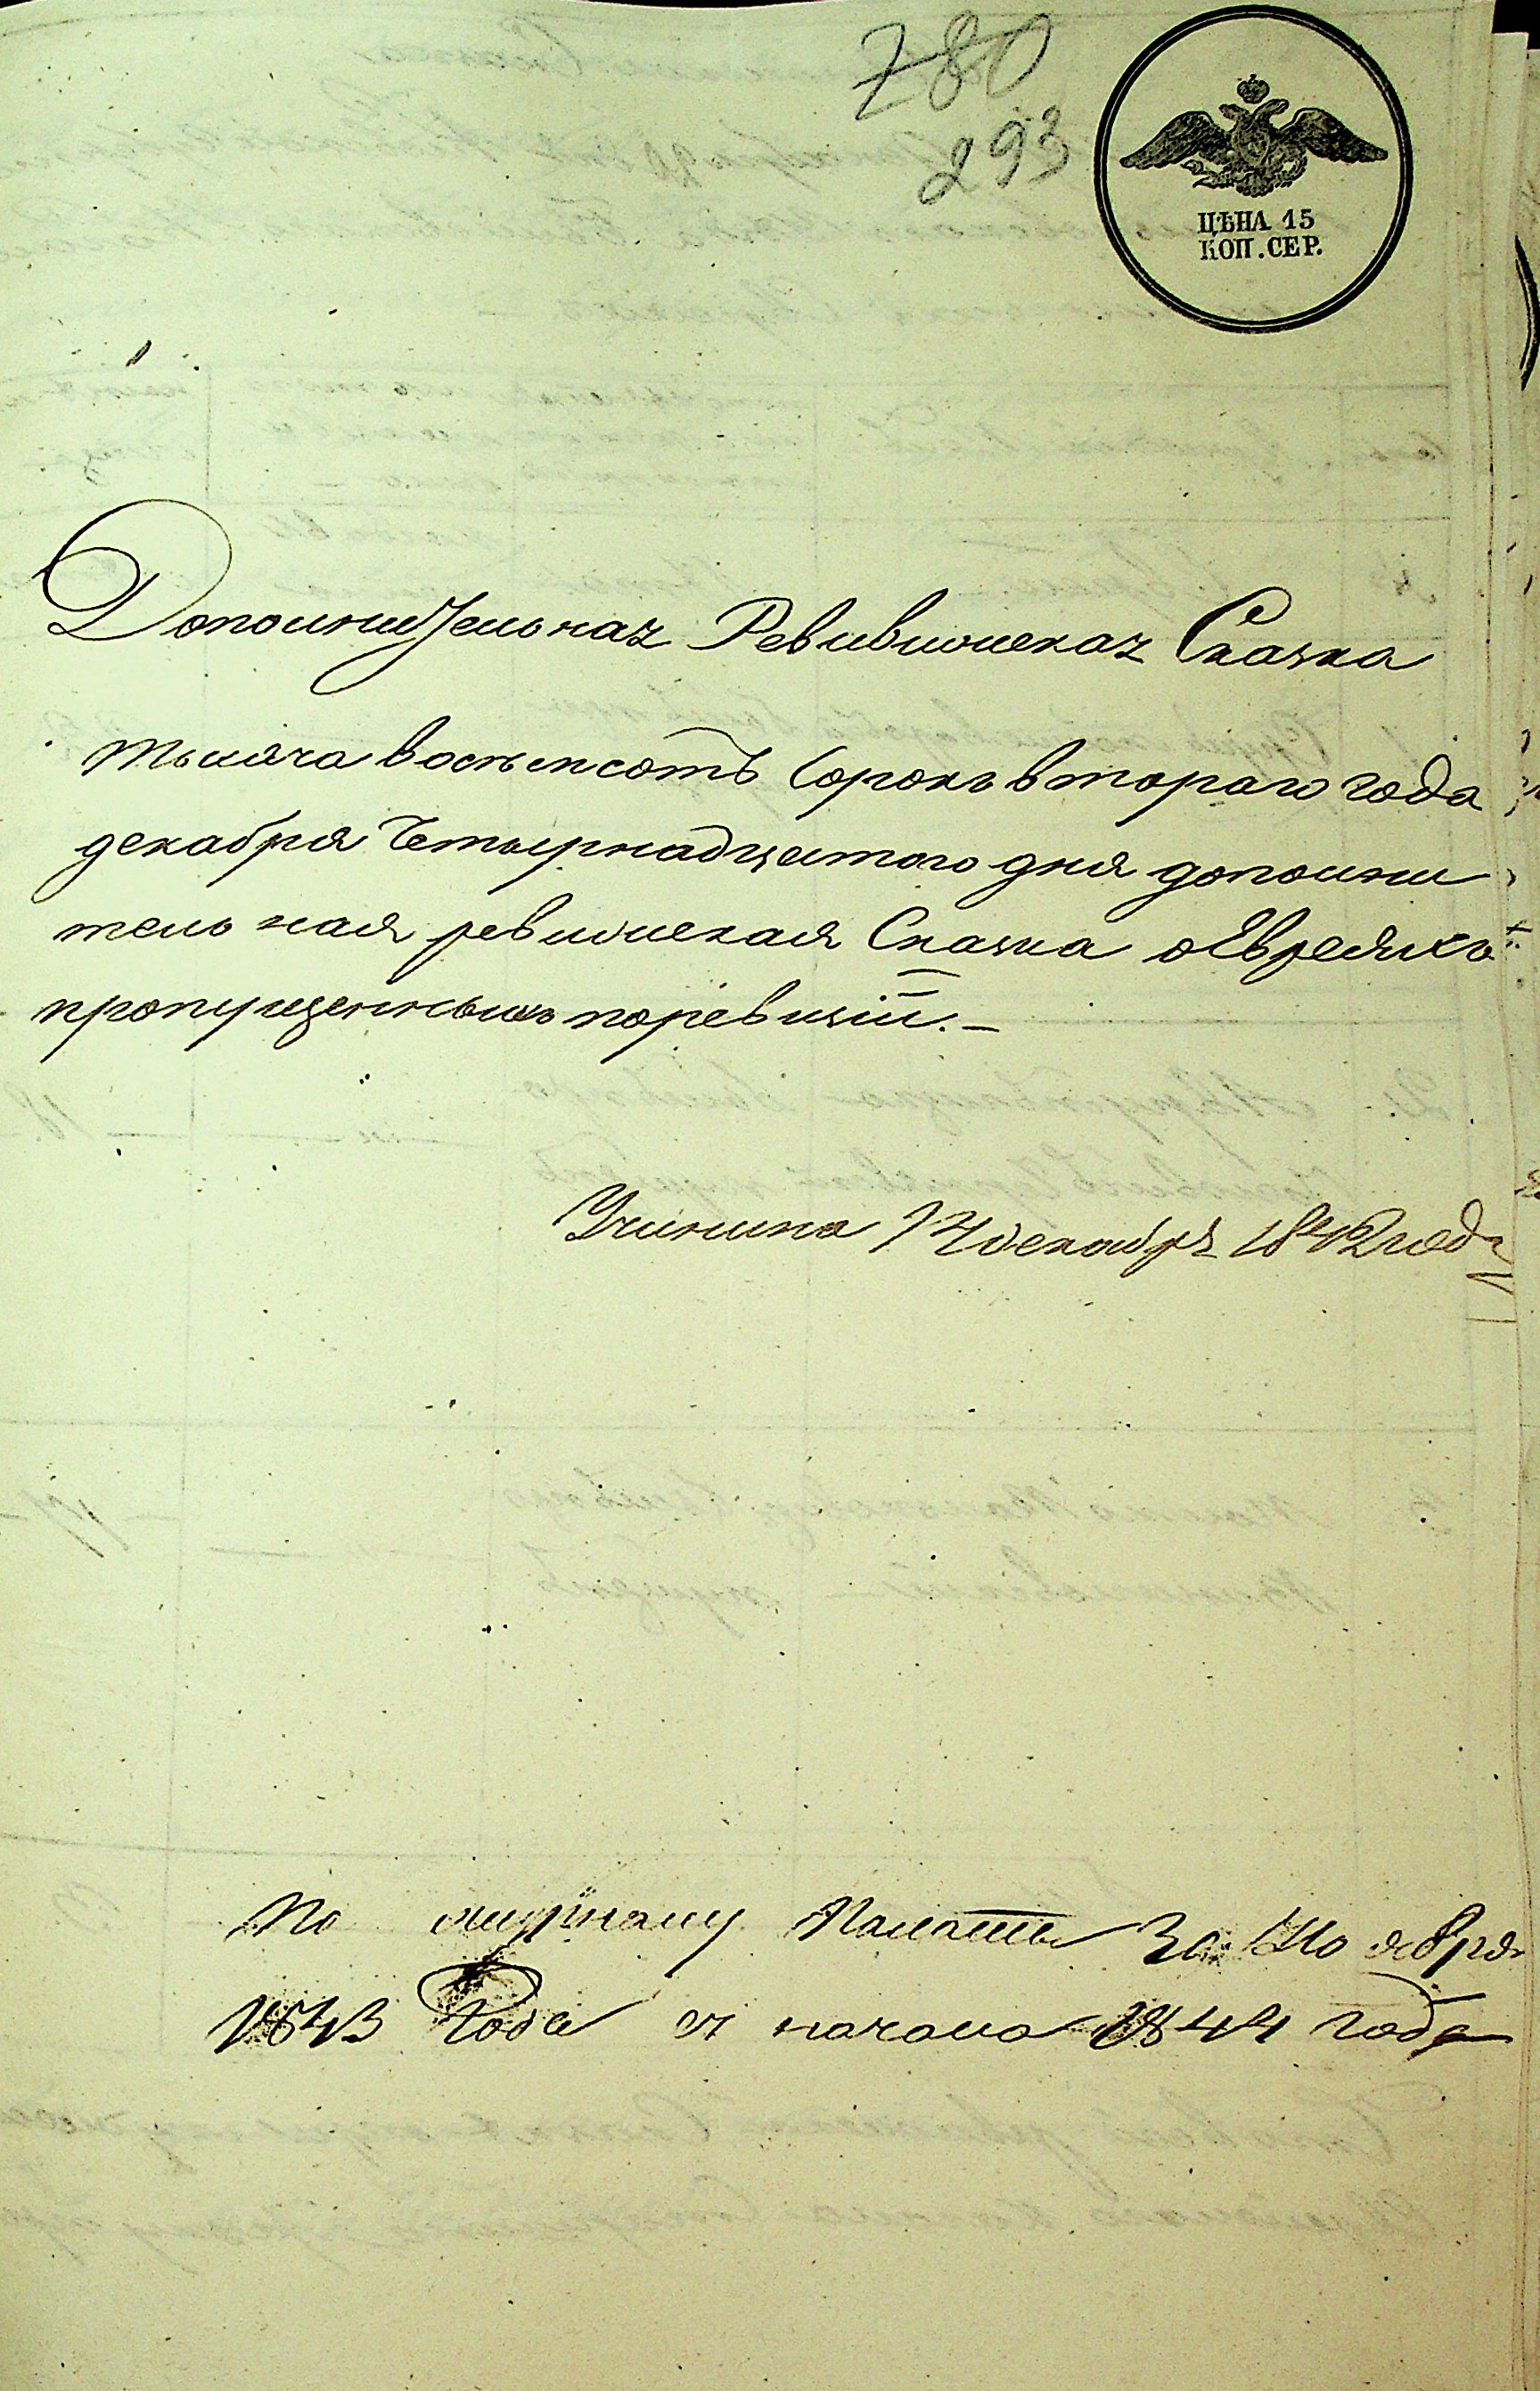 780
293
ЦѢНА 15
КОП. СЕР.
Дополнительная Ревизионская Сказка
тысяча восемьсотъ сорокъ втораго года
декабря Четырнадцатого дня дополни
тельная ревизионская Сказка о Евреяхъ
пропущенныхъ по ревизіи.
Учинина 14 декабря 1842 года
По журналу Палаты За Ноября
1843 Года съ начала 1844 года